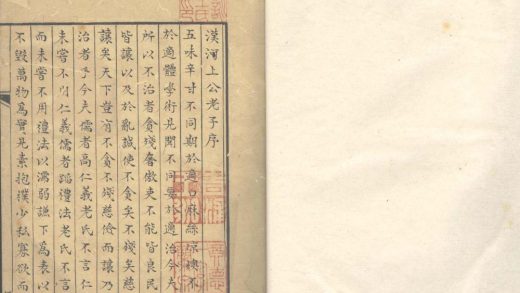 漢河上公老子序
五味辛甘不同期於適口麻絲涼燠不
於適體學術見聞不同要於適治今夫
所以不治者貪殘奢傲吏不能皆良民
皆讓以及於亂誠使不貪矣不殘矣慈
讓矣天下豈有不貪不殘慈儉而讓乃
治者乎今夫儒者高仁義老氏不言仁
未嘗不用仁義儒者蹈禮法老氏不言
而未嘗不用禮法以濡弱謙下爲表以
不毀萬物爲實見素抱樸少私寡欲而